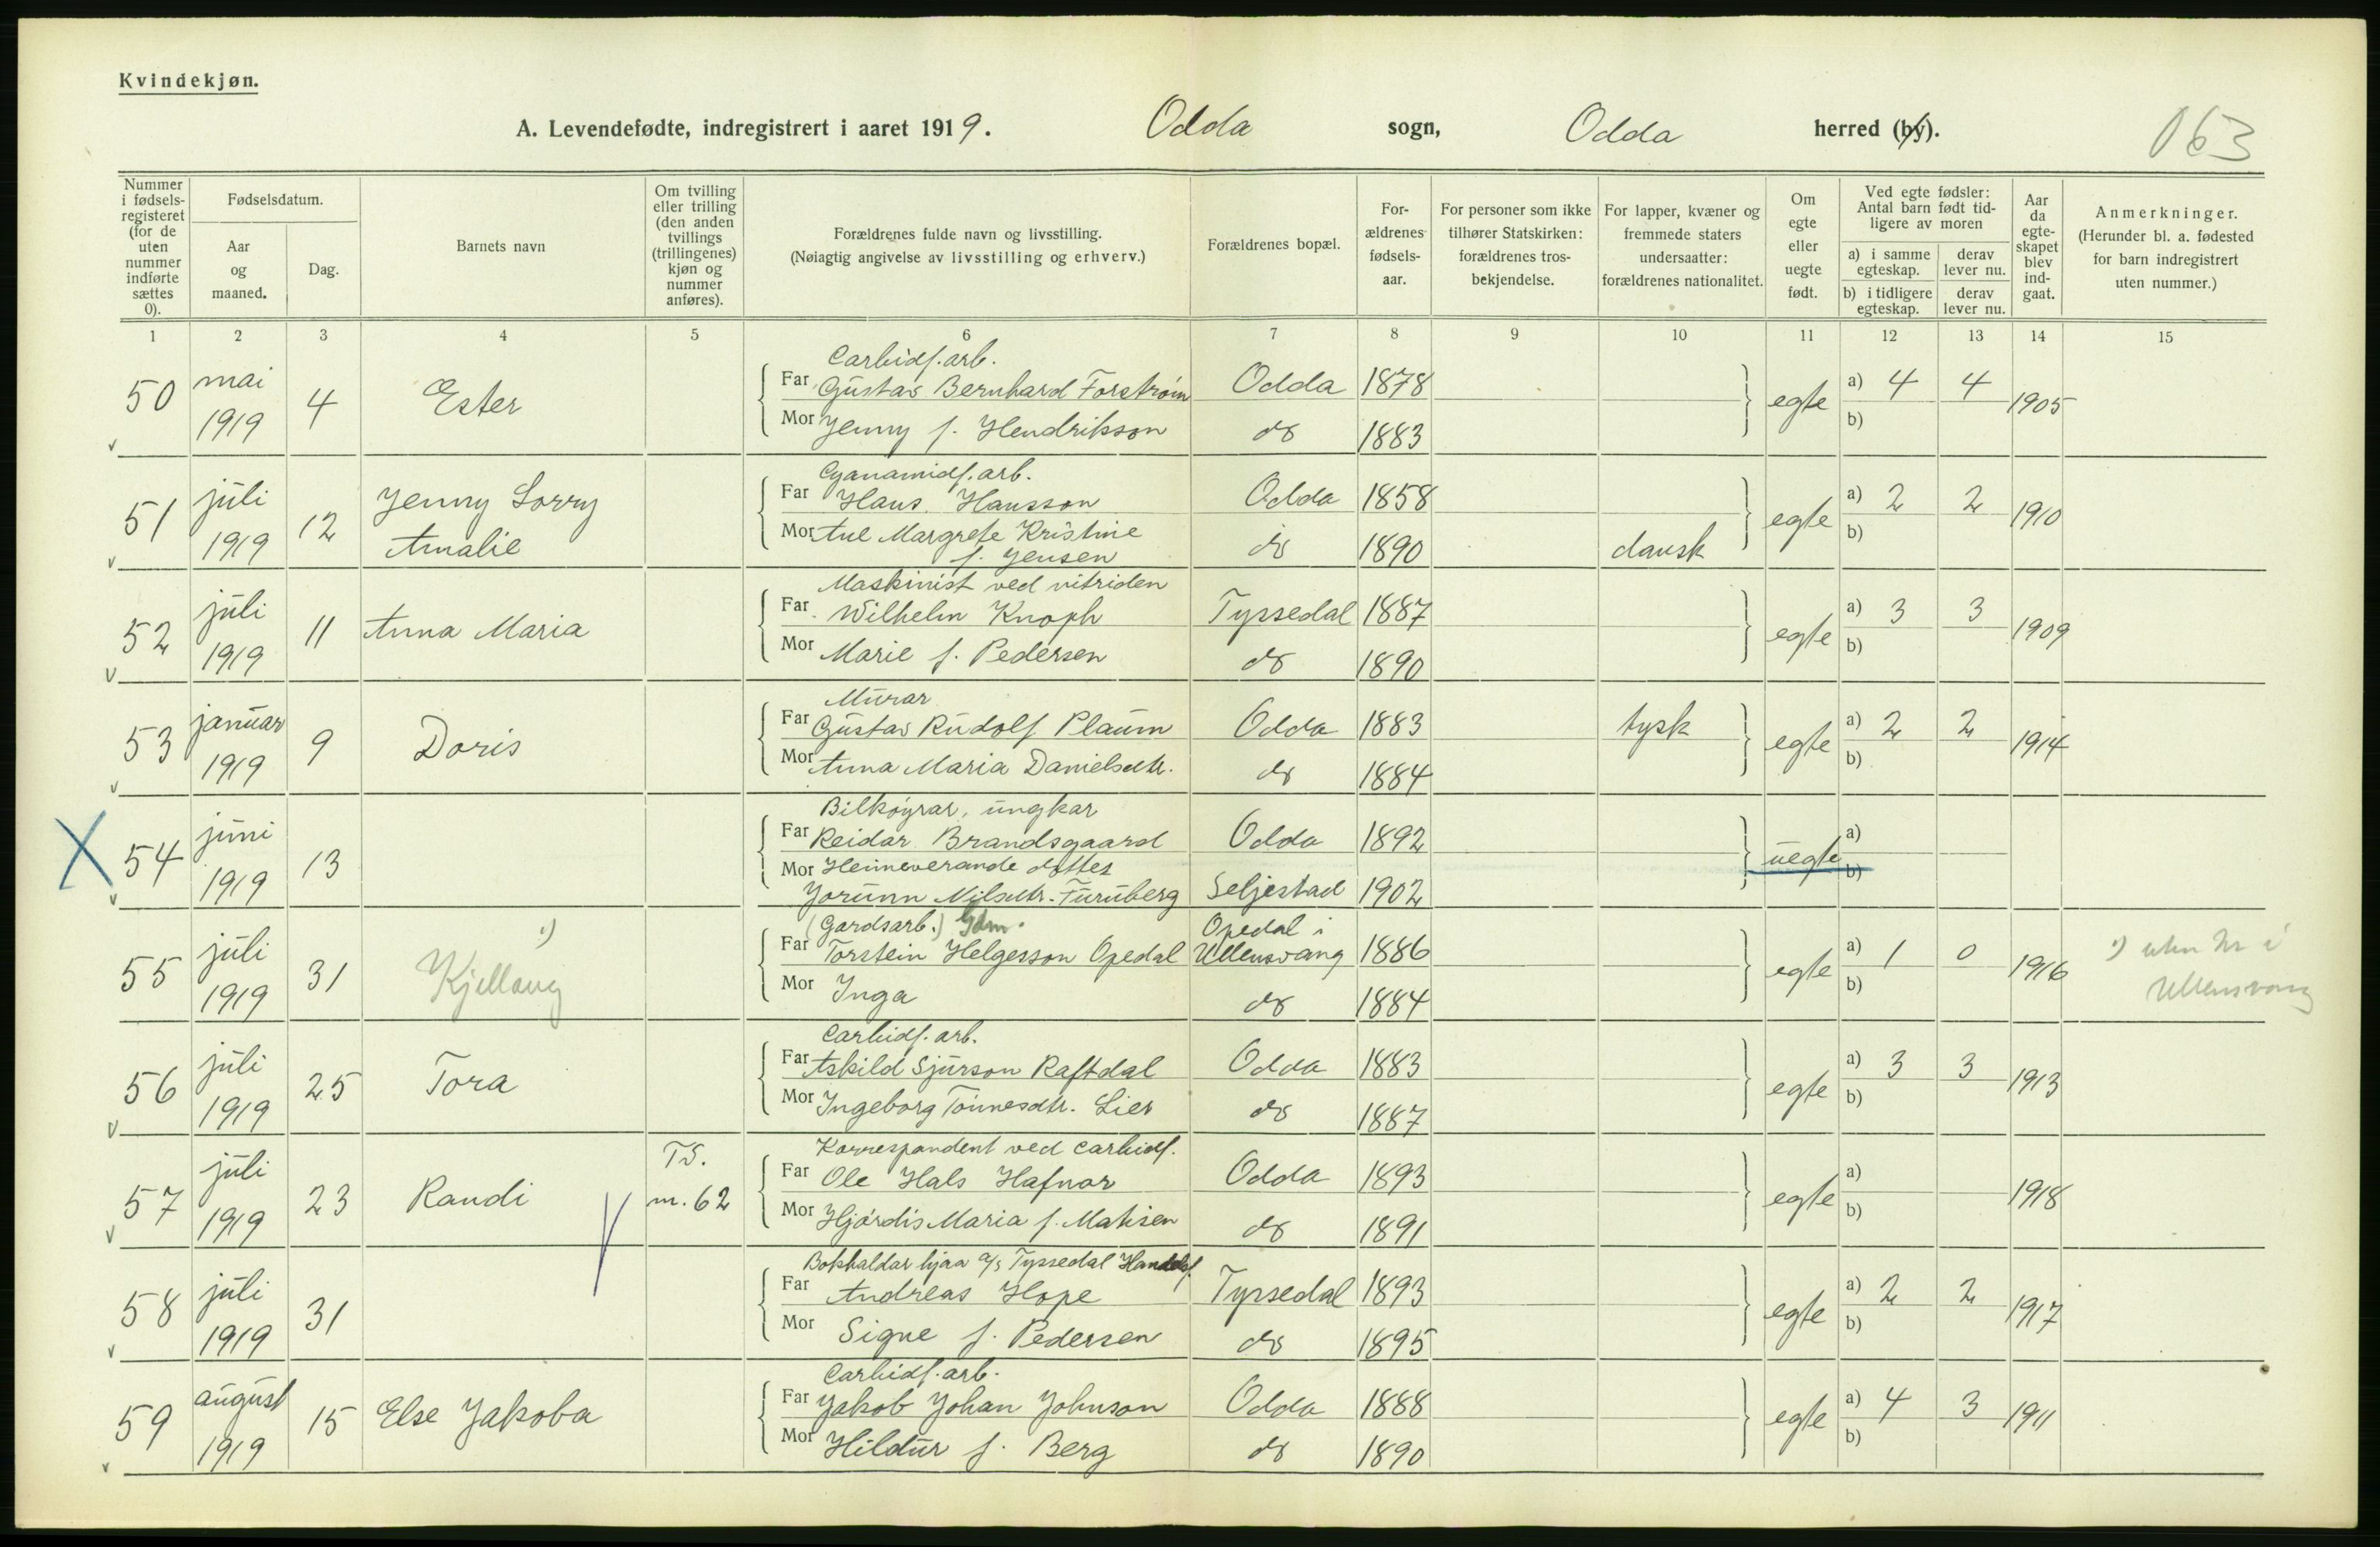 Kvindekjøn.
A. Levendefødte, indregistrert i aaret 1919. Odda sogn, Odda herred (by).
163
Nummer i fødsels-registeret (for de uten nummer indførte sættes 0).
Fødselsdatum.
Aar og maaned.
Dag.
Barnets navn
Om tvilling eller trilling (den anden tvillings (trillingenes) kjøn og nummer anføres).
Forældrenes fulde navn og livsstilling.
(Nøiagtig angivelse av livsstilling og erhverv.)
Forældrenes bopæl.
For-ældrenes fødsels-aar.
For personer som ikke tilhører Statskirken: forældrenes tros-bekjendelse.
For lapper, kvæner og fremmede staters undersaatter: forældrenes nationalitet.
Om egte eller uegte født.
Ved egte fødsler: Antal barn født tid-ligere av moren
a) i samme egteskap.
derav lever nu.
b) i tidligere egteskap.
derav lever nu.
Aar da egte-skapet blev ind-gaat.
Anmerkninger.
(Herunder bl. a. fødested for barn indregistrert uten nummer.)
1 2 3 4 5 6 7 8 9 10 11 12 13 14 15
Carbidf. arb.
50 mai 1919 4 Ester Far Gustav Bernhard Forstrøm Odda 1878 egte a) 4 4 1905
Mor Jenny f. Hendrikson do 1883 b)
Cyanamidf. arb.
51 juli 1919 12 Jenny Lovry Amalie Far Hans Hansson Odda 1858 egte a) 2 2 1910
Mor Ane Margrete Kristine f. Jensen do 1890 dansk b)
Maskinist ved nitriden
52 juli 1919 11 Anna Maria Far Wilhelm Knoph Tyssedal 1887 egte a) 3 3 1909
Mor Marie f. Pedersen do 1890 b)
Murar
53 januar 1919 9 Doris Far Gustav Rudolf Plaum Odda 1883 tysk egte a) 2 2 1914
Mor Anna Maria Danielsdtr. do 1884 b)
Bilkøyrar, ungkar
X 54 juni 1919 13 Far Reidar Brandsgaard Odda 1892 uegte a)
Mor Heimeverande dotter b)
Jorunn Nilsdtr. Furuberg Seljestad 1902
(Gardsarb.) Gdm.
55 juli 1919 31 Kjellaug 1) Far Torstein Helgesson Opedal Opedal i Ullensvang 1886 egte a) 1 0 1916 1) uten nr i Ullensvang
Mor Inga do 1884 b)
Carbidf. arb.
56 juli 1919 25 Tora Far Askild Sjurson Raftdal Odda 1883 egte a) 3 3 1913
Mor Ingeborg Tønnesdtr. Lier do 1887 b)
Korrespondent ved carbidf.
57 juli 1919 23 Randi Tv. m. 62 Far Ole Hals Hafnor Odda 1893 egte a) 1918
Mor Hjørdis Maria f. Matisen do 1891 b)
Bokhaldar hjaa a/s Tyssedal Handelsf.
58 juli 1919 31 Far Andreas Hope Tyssedal 1893 egte a) 2 2 1917
Mor Signe f. Pedersen do 1895 b)
Carbidf. arb.
59 august 1919 15 Else Jakoba Far Jakob Johan Johnson Odda 1888 egte a) 4 3 1911
Mor Hildur f. Berg do 1890 b)